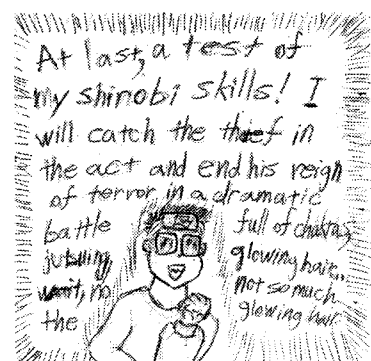 At last, a test of
my shinobi skills! I
will catch the thief in
the act and end his reign
of terror in a dramatic
battle full of chakras,
jutsuing, glowing hair..
wait, no not so much
the glowing hair